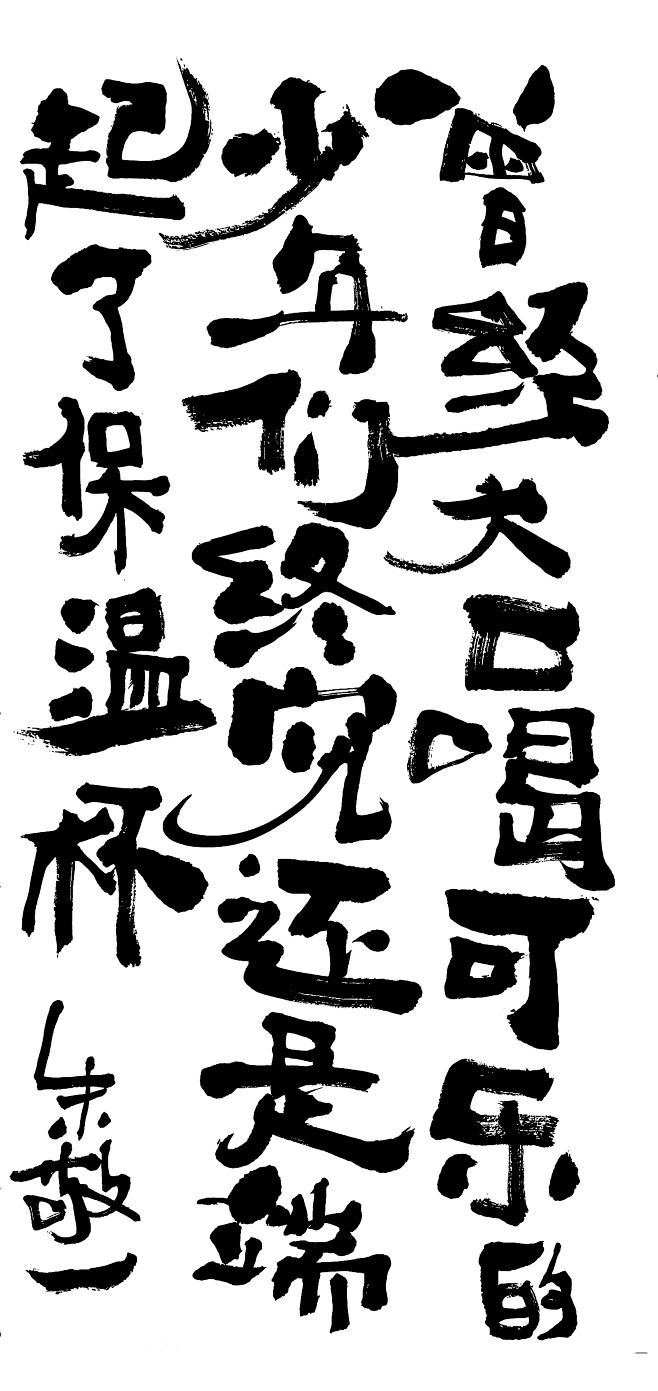 曾经大口喝可乐的
少年们终究还是端
起了保温杯
朱敬一